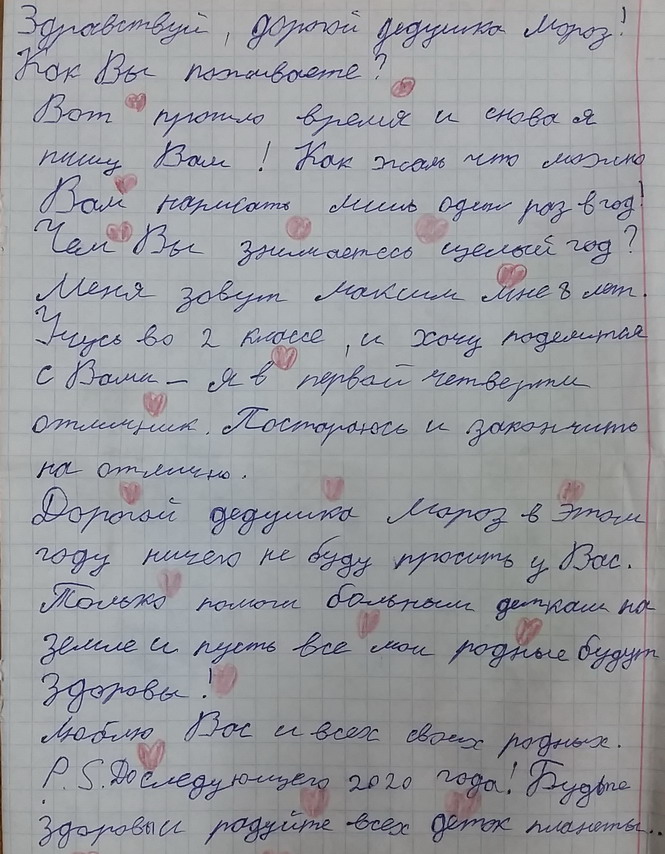 Здравствуй, дорогой дедушка Мороз!
Как Вы поживаете?
Вот прошло время и снова я
пишу Вам! Как жаль что можно
Вам написать лишь один раз в год!
Чем Вы знимаетесь целый год?
Меня зовут Максим мне 8 лет.
Учусь во 2 классе, и хочу поделится
с Вами – я в первой четверти
отличник. Постараюсь и закончить
на отлично.
Дорогой дедушка Мороз в этом
году ничего не буду просить у Вас.
Только помоги больным деткам на
земле и пусть все мои родные будут
здоровы!
Люблю Вас и всех своих родных.
P.S. До следующего 2020 года! Будьте
здоровы и радуйте всех деток планеты..